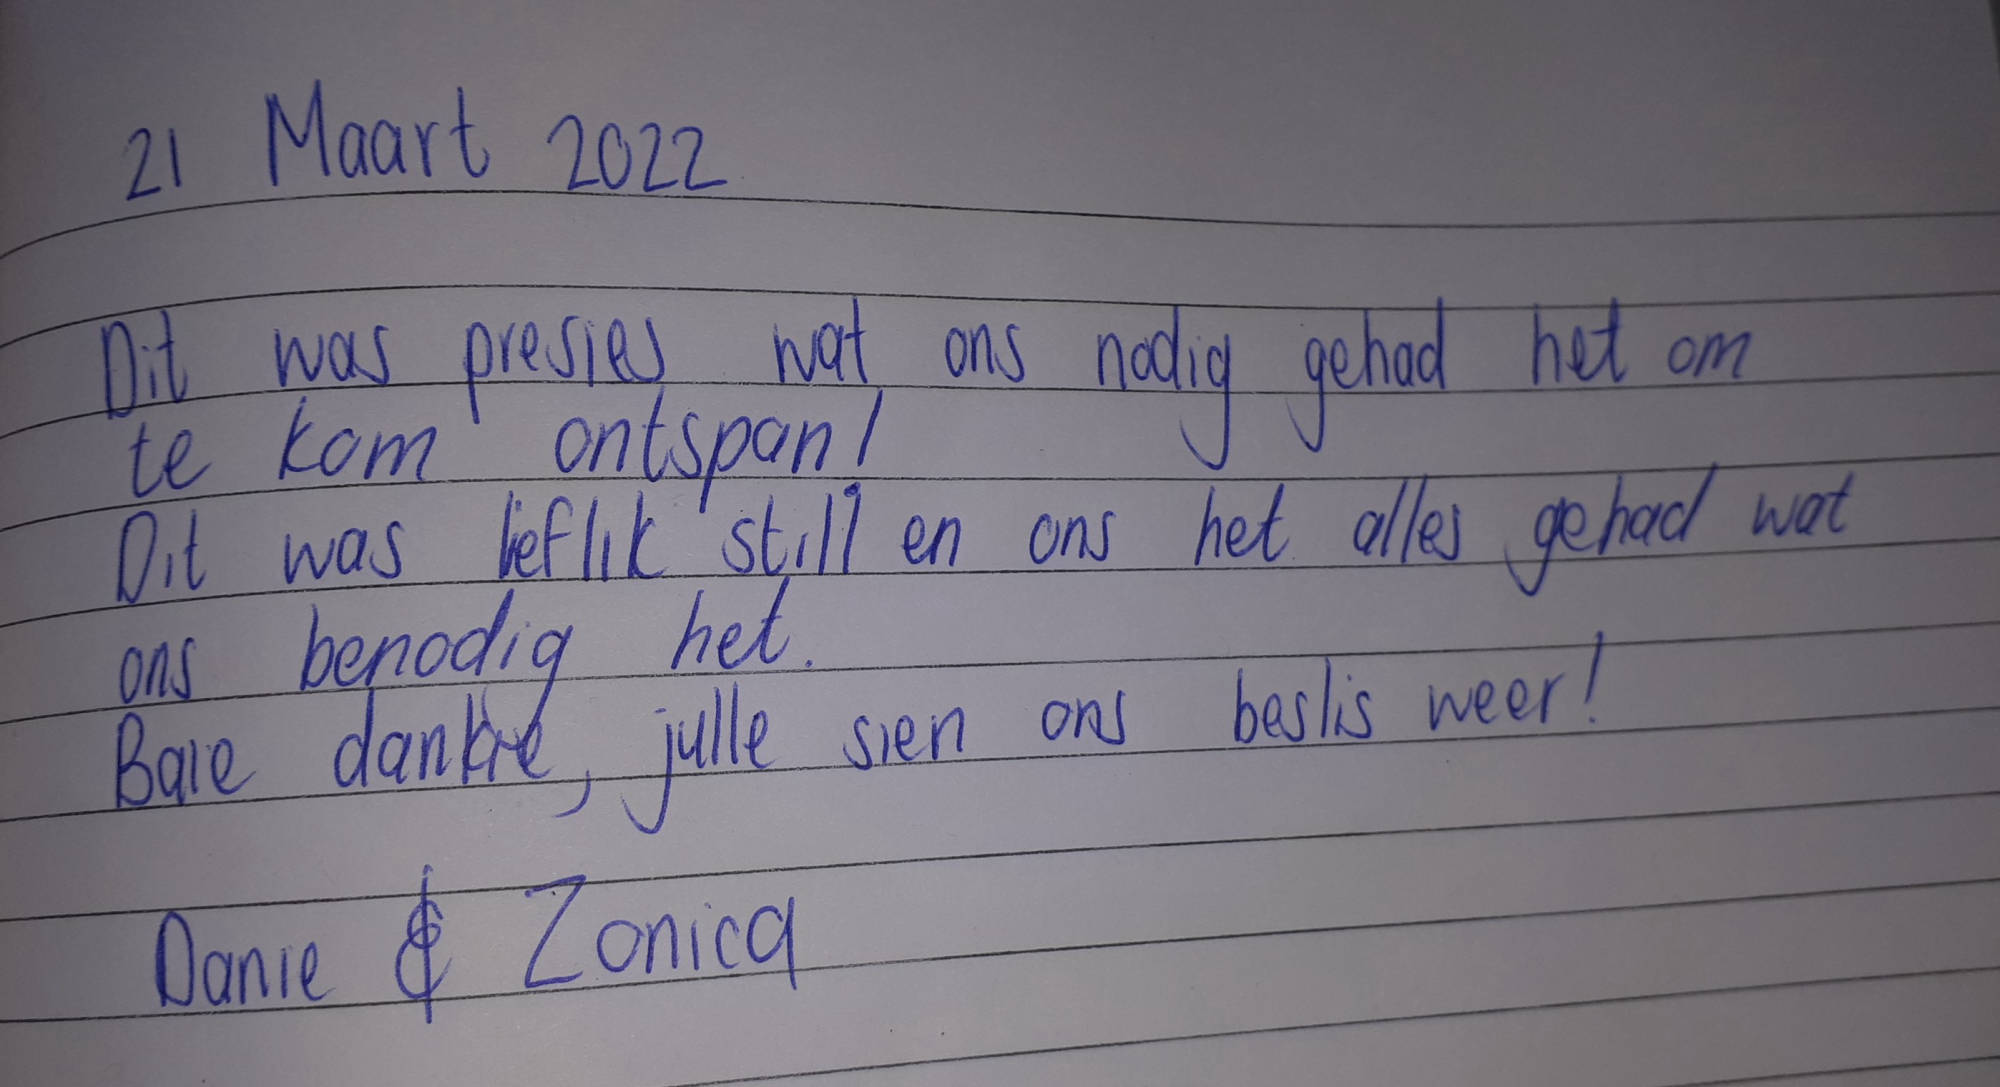 21 Maart 2022
Dit was presies wat ons nodig gehad het om
te kom ontspan!
Dit was lieflik still en ons het alles gehad wat
ons benodig het.
Baie dankie, julle sien ons beslis weer!
Danie & Zonica